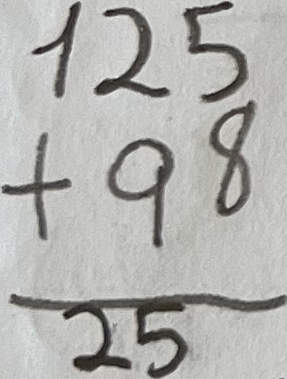 125
+ 98
25